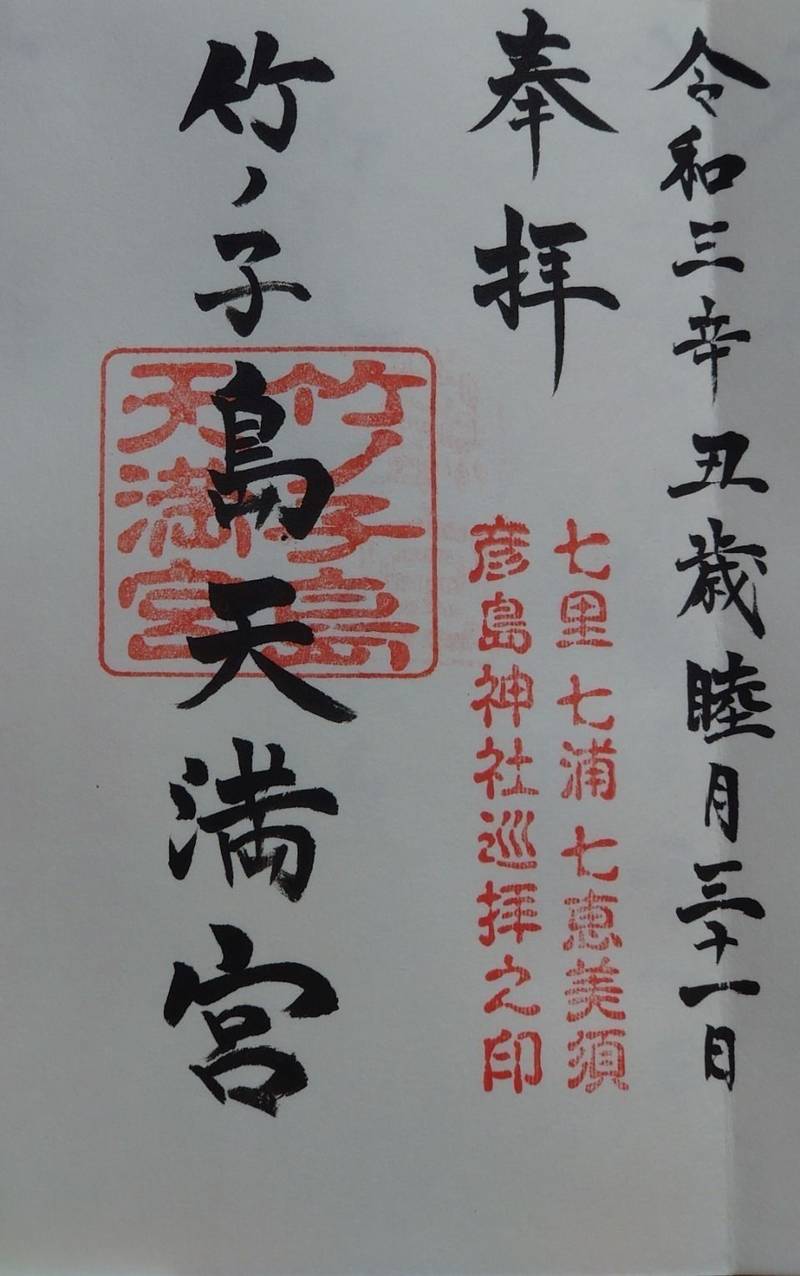 令和三辛丑歳睦月三十一日
奉拝
七里七浦七恵美須
彦島神社巡拝之印
竹ノ子島天満宮
竹ノ子島
天満宮